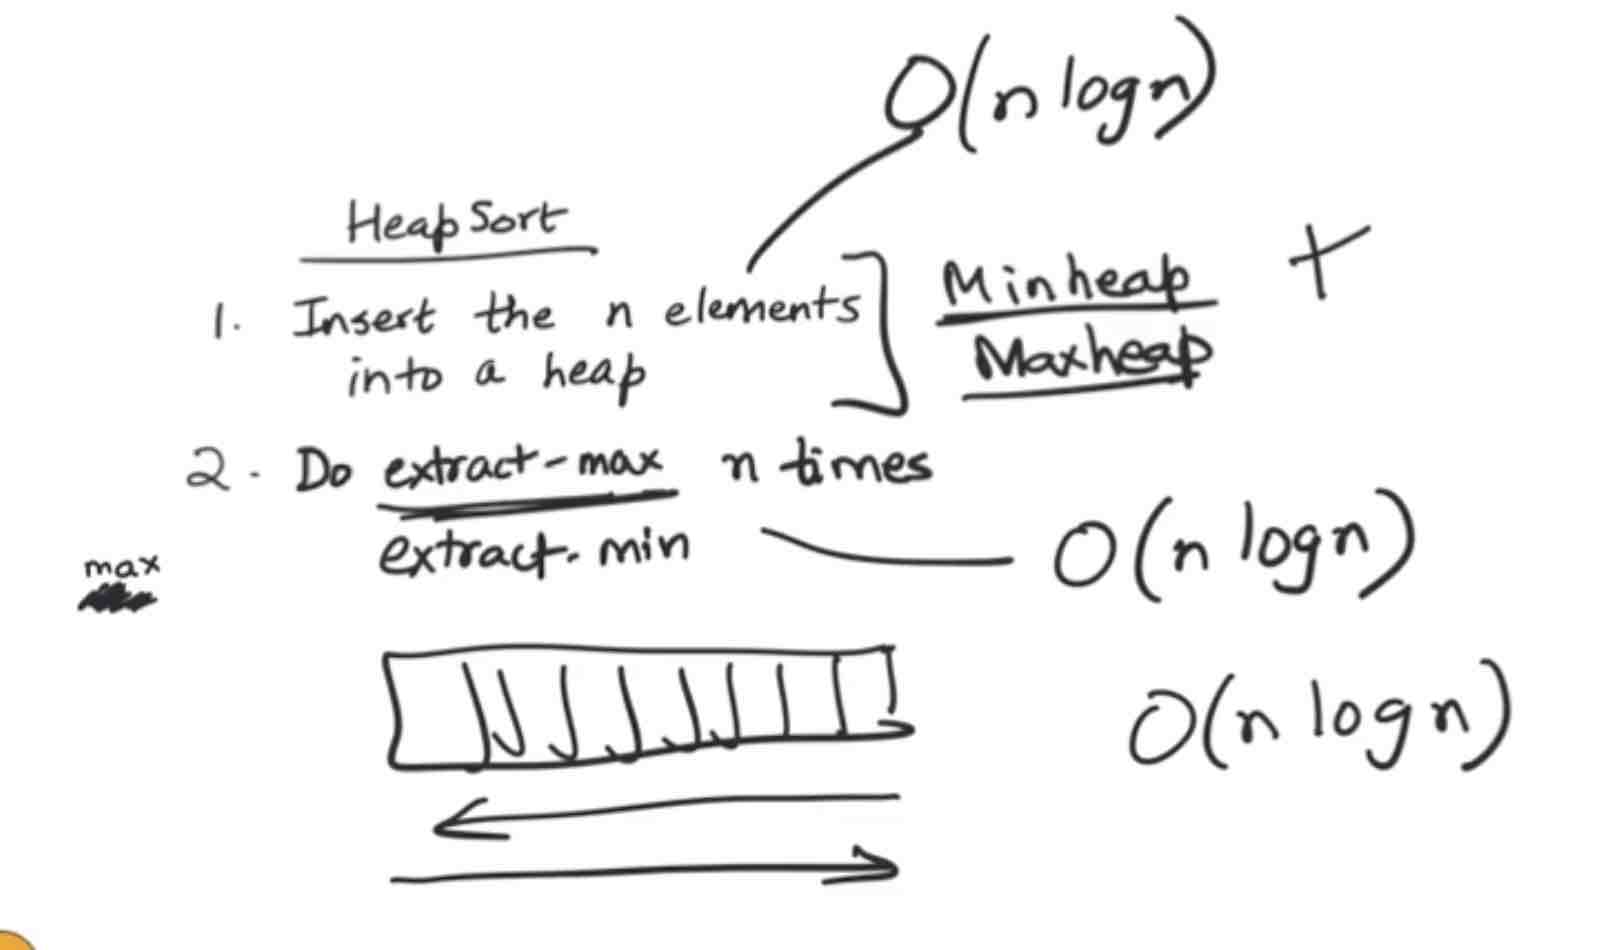 O(n log n)
Heap Sort
1. Insert the n elements
into a heap
Minheap
Maxheap
+
2. Do extract-max n times
extract-min
O(n log n)
max
O(n log n)